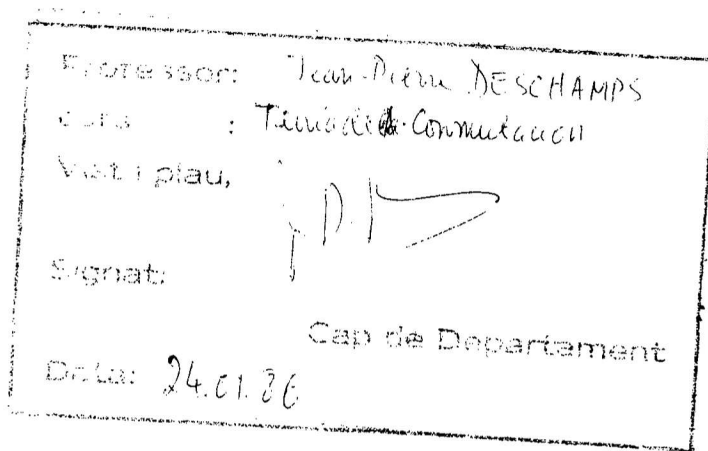 Professor: Jean-Pierre DESCHAMPS
Curs : Teoría de la Conmutación
Vist i plau,
Signat:
Cap de Departament
Data: 24.01.86